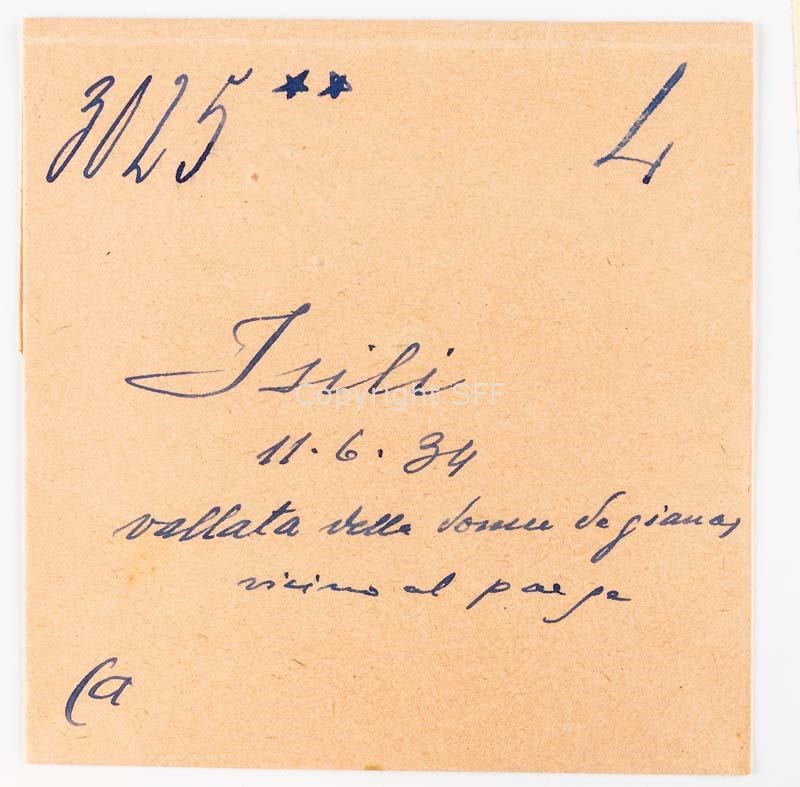 3025 ** 4
Isili
Copyright SFF
11.6.34
vallata delle domu de gianas
vicino al paese
Ca